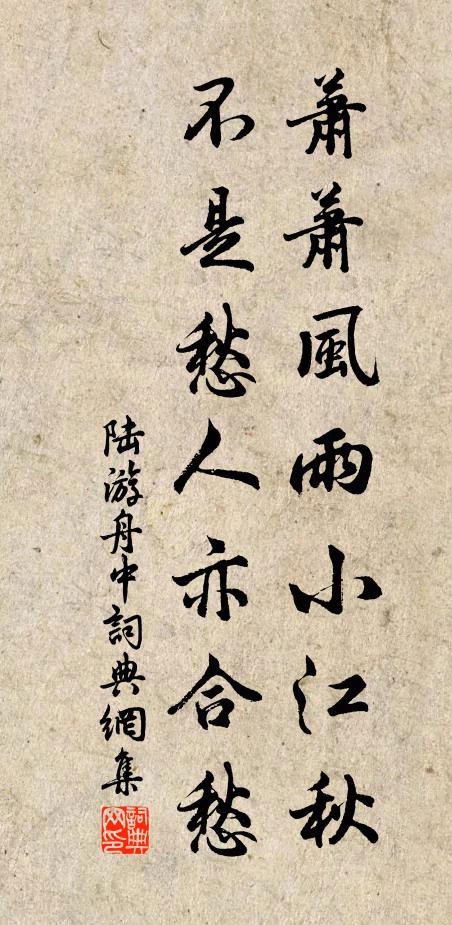 蕭蕭風雨小江秋
不是愁人亦合愁
陸游舟中詞典網集
詞典网印